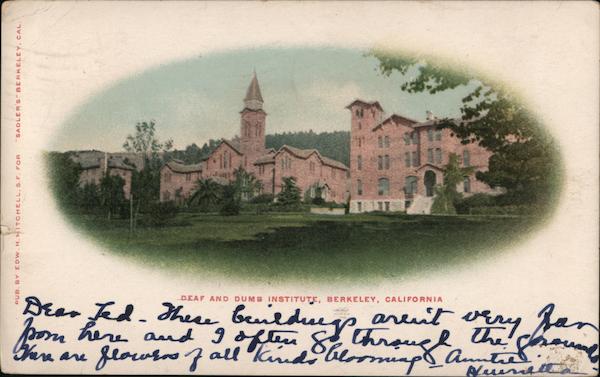 PUB. BY EDW. H. MITCHELL, S.F. FOR "SADLER'S" BERKELEY, CAL.
DEAF AND DUMB INSTITUTE, BERKELEY, CALIFORNIA
Dear Ted - These buildings aren't very far
from here and I often go through the grounds
There are flowers of all kinds blooming - Auntie